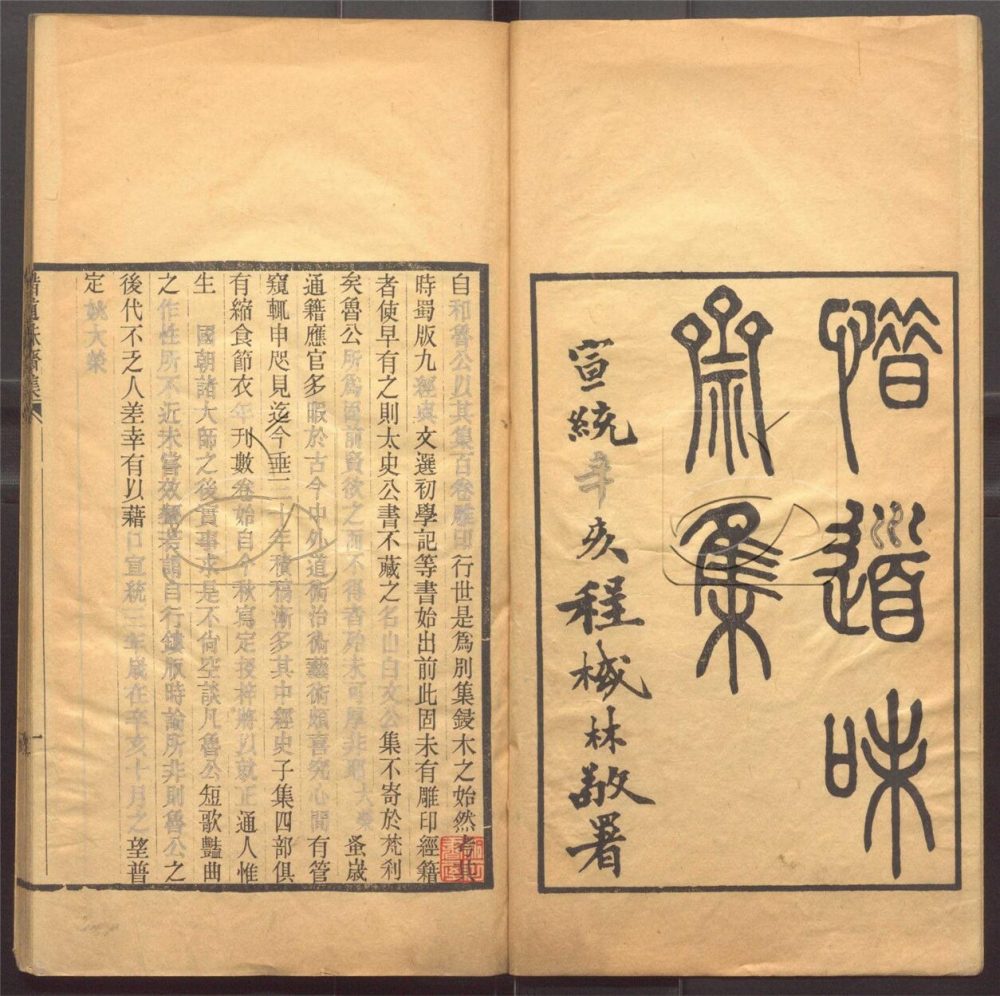 惜道味
齋集
宣統辛亥程棫林敬署
自和魯公以其集百卷雕印行世是爲別集鋟木之始然考其
時蜀版九經與文選初學記等書始出前此固未有雕印經籍
者使早有之則太史公書不藏之名山白文公集不寄於梵刹
矣魯公所爲固前賢欲之而不得者殆未可厚非也大榮蚤歲
通籍應官多暇於古今中外道術治術藝術頗喜究心間有管
窺輒申咫見迄今垂二十年積稿漸多其中經史子集四部俱
有縮食節衣年刊數卷始自今秋寫定授梓將以就正通人惟
生國朝諸大師之後實事求是不尙空談凡魯公短歌豔曲
之作性所不近未嘗效顰若謂自行鏤版時論所非則魯公之
後代不乏人差幸有以藉口宣統三年歲在辛亥十月之望普
定姚大榮
惜道味齋集
一